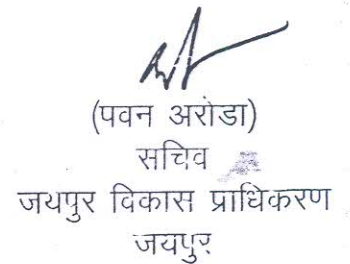 (पवन अरोडा)
सचिव
जयपुर विकास प्राधिकरण
जयपुर